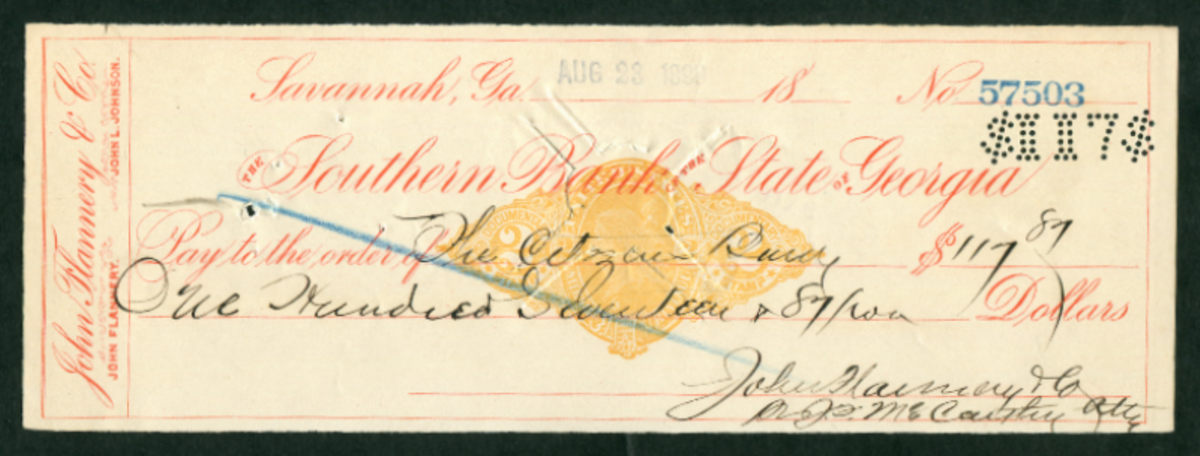 John Flannery & Co.
JOHN FLANNERY.
JOHN L. JOHNSON.
Savannah, Ga. AUG 23 18 18 No. 57503
$117$
THE Southern Bank OF THE State OF Georgia
Pay to the order of The Citizens Bank $117 87
One Hundred Seventeen & 87/100 Dollars
John Flannery & Co
McCarthy Atty